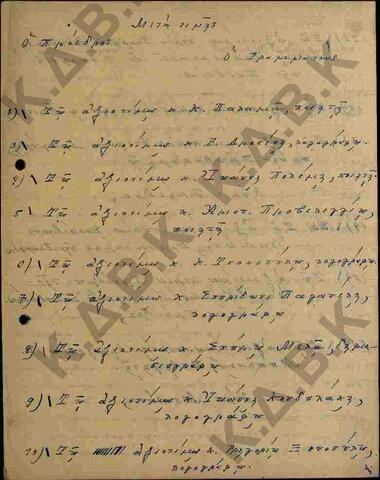 Μετὰ τιμῆς
Ὁ Πρόεδρος
Ὁ Γραμματεύς
Τῷ ἀξιοτίμῳ κ. Κ. Παλαμᾷ, ποιητῇ
3) Τῷ ἀξιοτίμῳ κ. λογογράφῳ.
Τῷ ἀξιοτίμῳ κ. Ἰωάννῃ Πολέμῃ, ποιητῇ.
5 Τῷ ἀξιοτίμῳ κ. Ἀριστ. Προβελεγγίῳ,
ποιητῇ
6) Τῷ ἀξιοτίμῳ κ. λογογράφῳ.
7) Τῷ ἀξιοτίμῳ κ. Σπυρίδωνι Παγανέλῃ,
λογογράφῳ
8) Τῷ ἀξιοτίμῳ κ. Σπύρῳ Μελᾷ, δημο-
σιογράφῳ
9) Τῷ ἀξιοτίμῳ κ. Ἰωάννῃ Κονδυλάκῃ,
λογογράφῳ
10) Τῷ ἀξιοτίμῳ κ. Γρηγορίῳ Ξενοπούλῳ,
λογογράφῳ.
Κ.Δ.Β.Κ